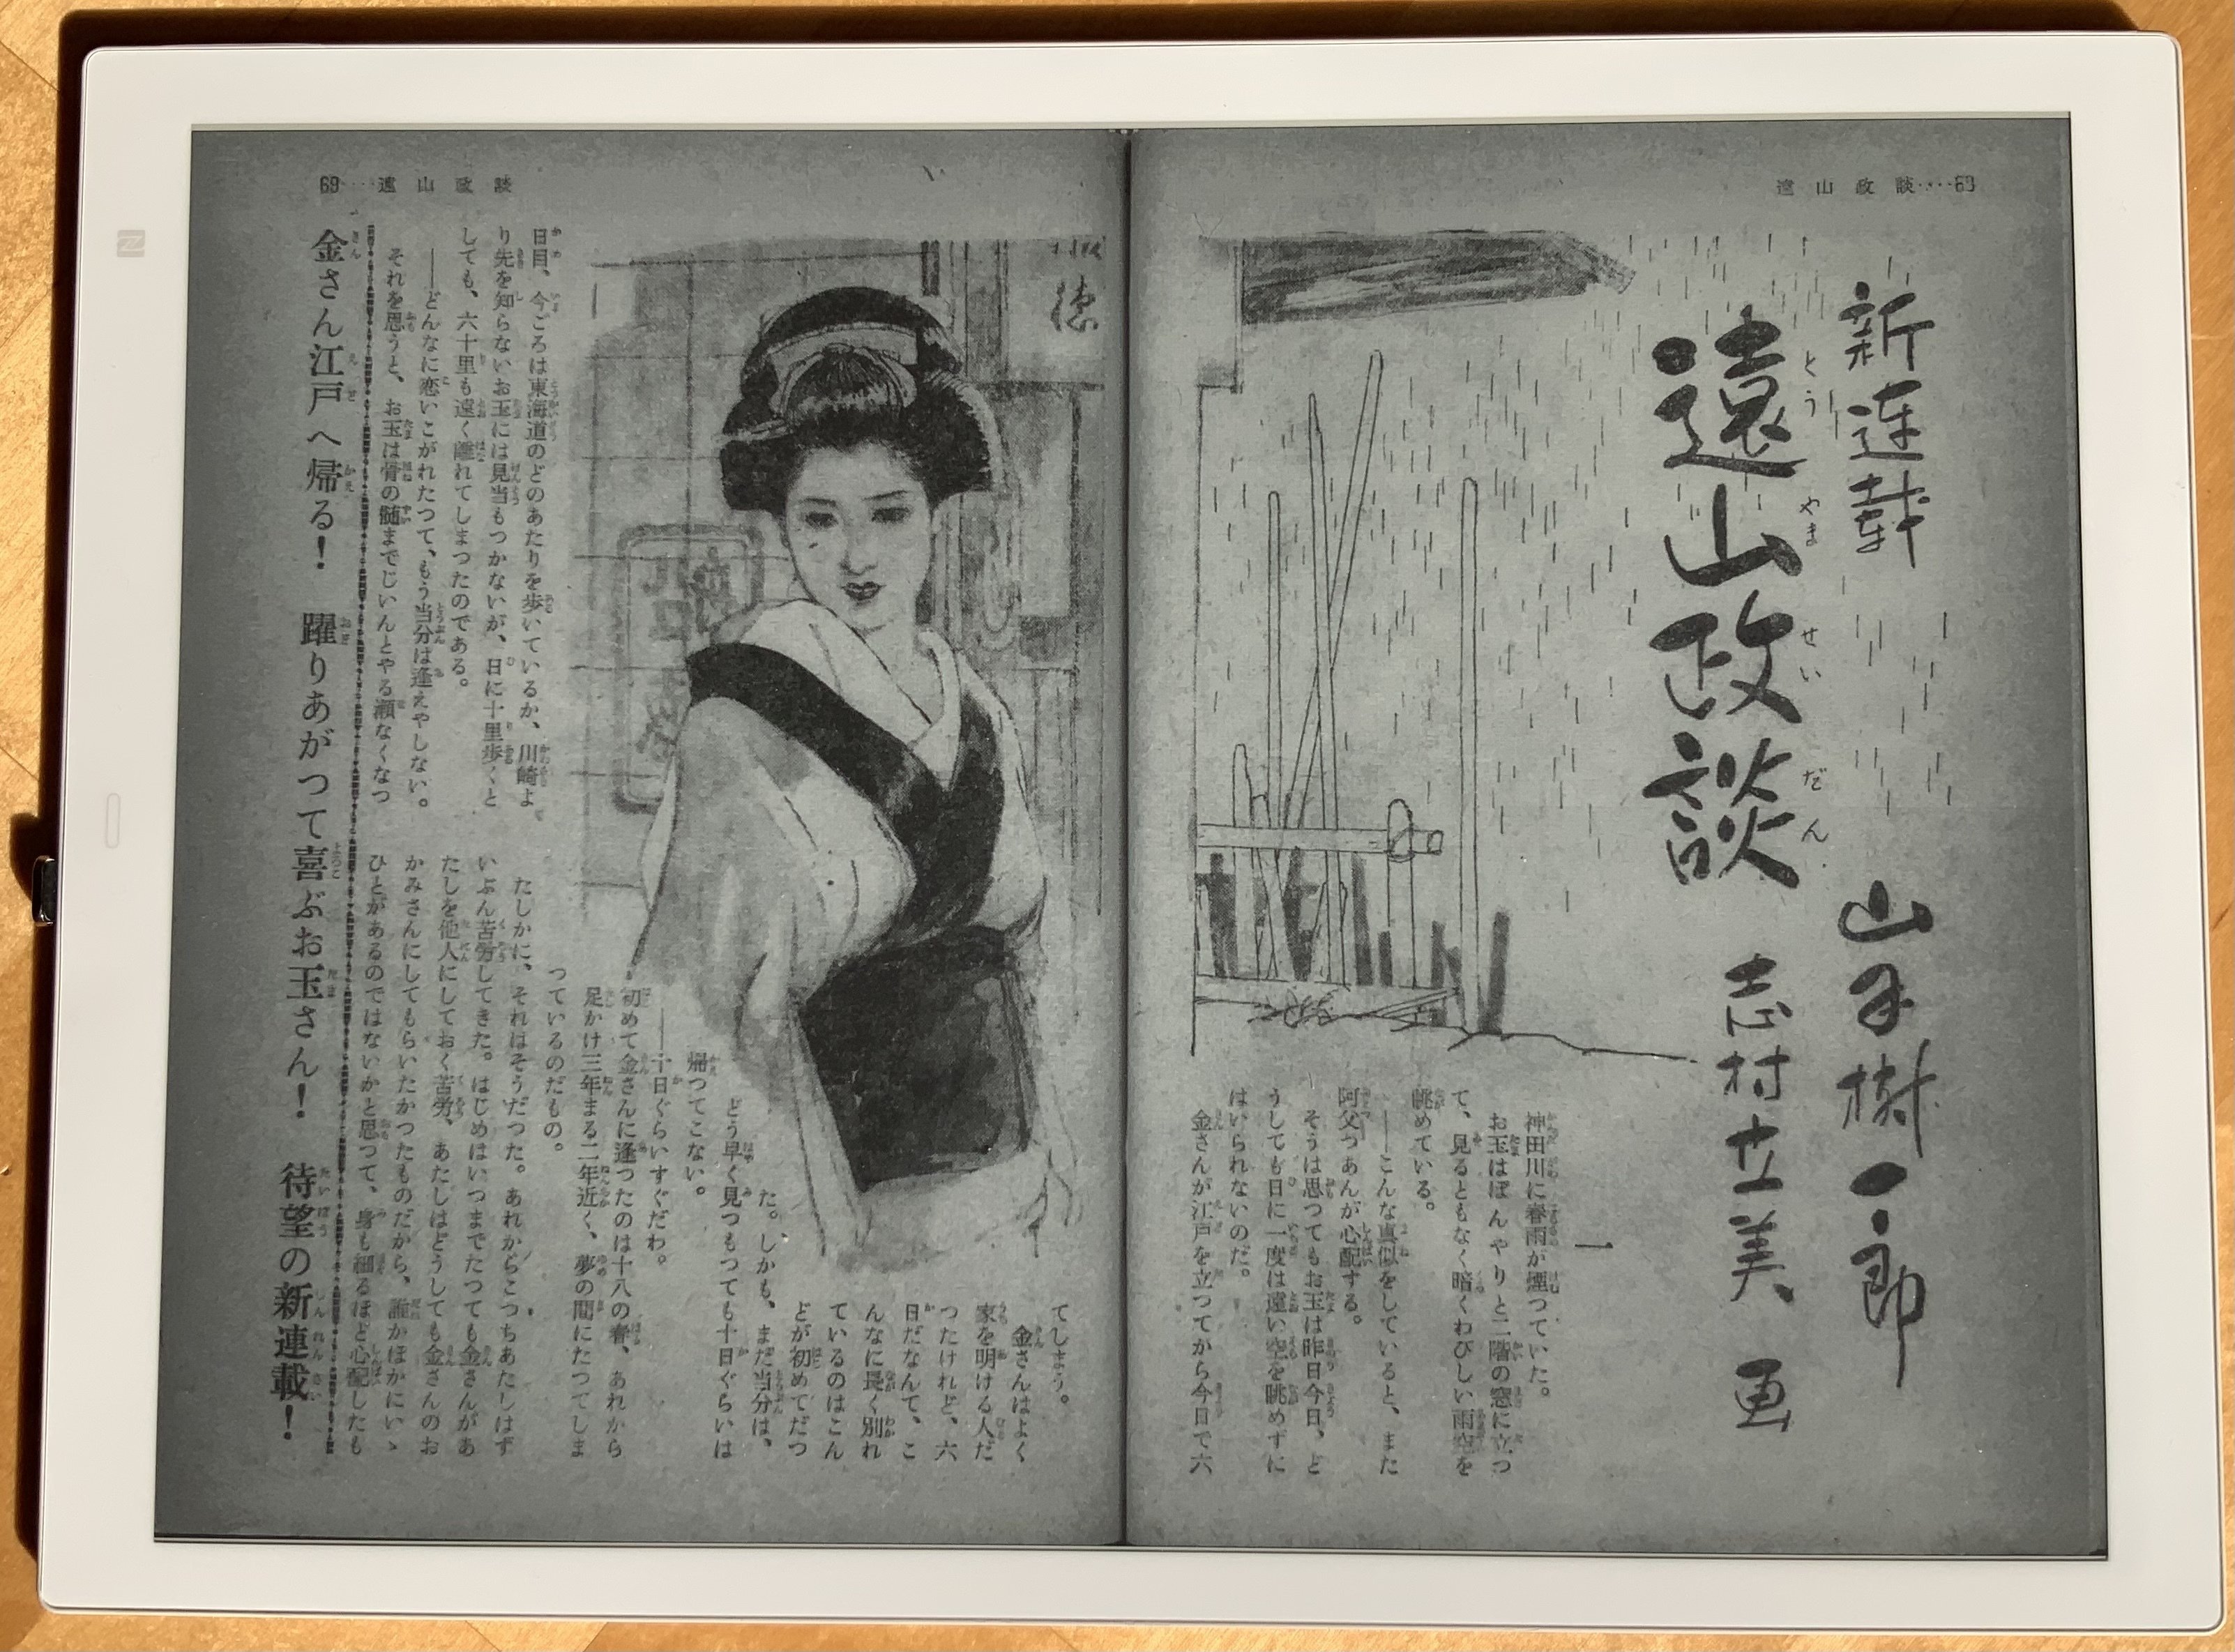 遠山政談‥‥63
新連載
遠山政談
とう
やま
せい
だん
山手樹一郎
志村立美 画
一
神田川に春雨が煙つていた。
お玉はぼんやりと二階の窓に立つ
て、見るともなく暗くわびしい雨空を
眺めている。
――こんな真似をしていると、また
阿父つあんが心配する。
そうは思つてもお玉は昨日今日、ど
うしても日に一度は遠い空を眺めずに
はいられないのだ。
金さんが江戸を立つてから今日で六
69‥‥遠山政談
日目、今ごろは東海道のどのあたりを歩いているか、川崎よ
り先を知らないお玉には見当もつかないが、日に十里歩くと
しても、六十里も遠く離れてしまつたのである。
――どんなに恋いこがれたつて、もう当分は逢えやしない。
それを思うと、お玉は骨の髄までじいんとやる瀬なくなつ
てしまう。
金さんはよく
家を明ける人だ
つたけれど、六
日だなんて、こ
んなに長く別れ
ているのはこん
どが初めてだつ
た。しかも、まだ当分は、
どう早く見つもつても十日ぐらいは
帰つてこない。
――十日ぐらいすぐだわ。
初めて金さんに逢つたのは十八の春、あれから
足かけ三年まる二年近く、夢の間にたつてしま
つているのだもの。
たしかに、それはそうだつた。あれからこつちあたしはず
いぶん苦労してきた。はじめはいつまでたつても金さんがあ
たしを他人にしておく苦労、あたしはどうしても金さんのお
かみさんにしてもらいたかつたものだから、誰かほかにいゝ
ひとがあるのではないかと思つて、身も細るほど心配したも
金さん江戸へ帰る！　躍りあがつて喜ぶお玉さん！　待望の新連載！